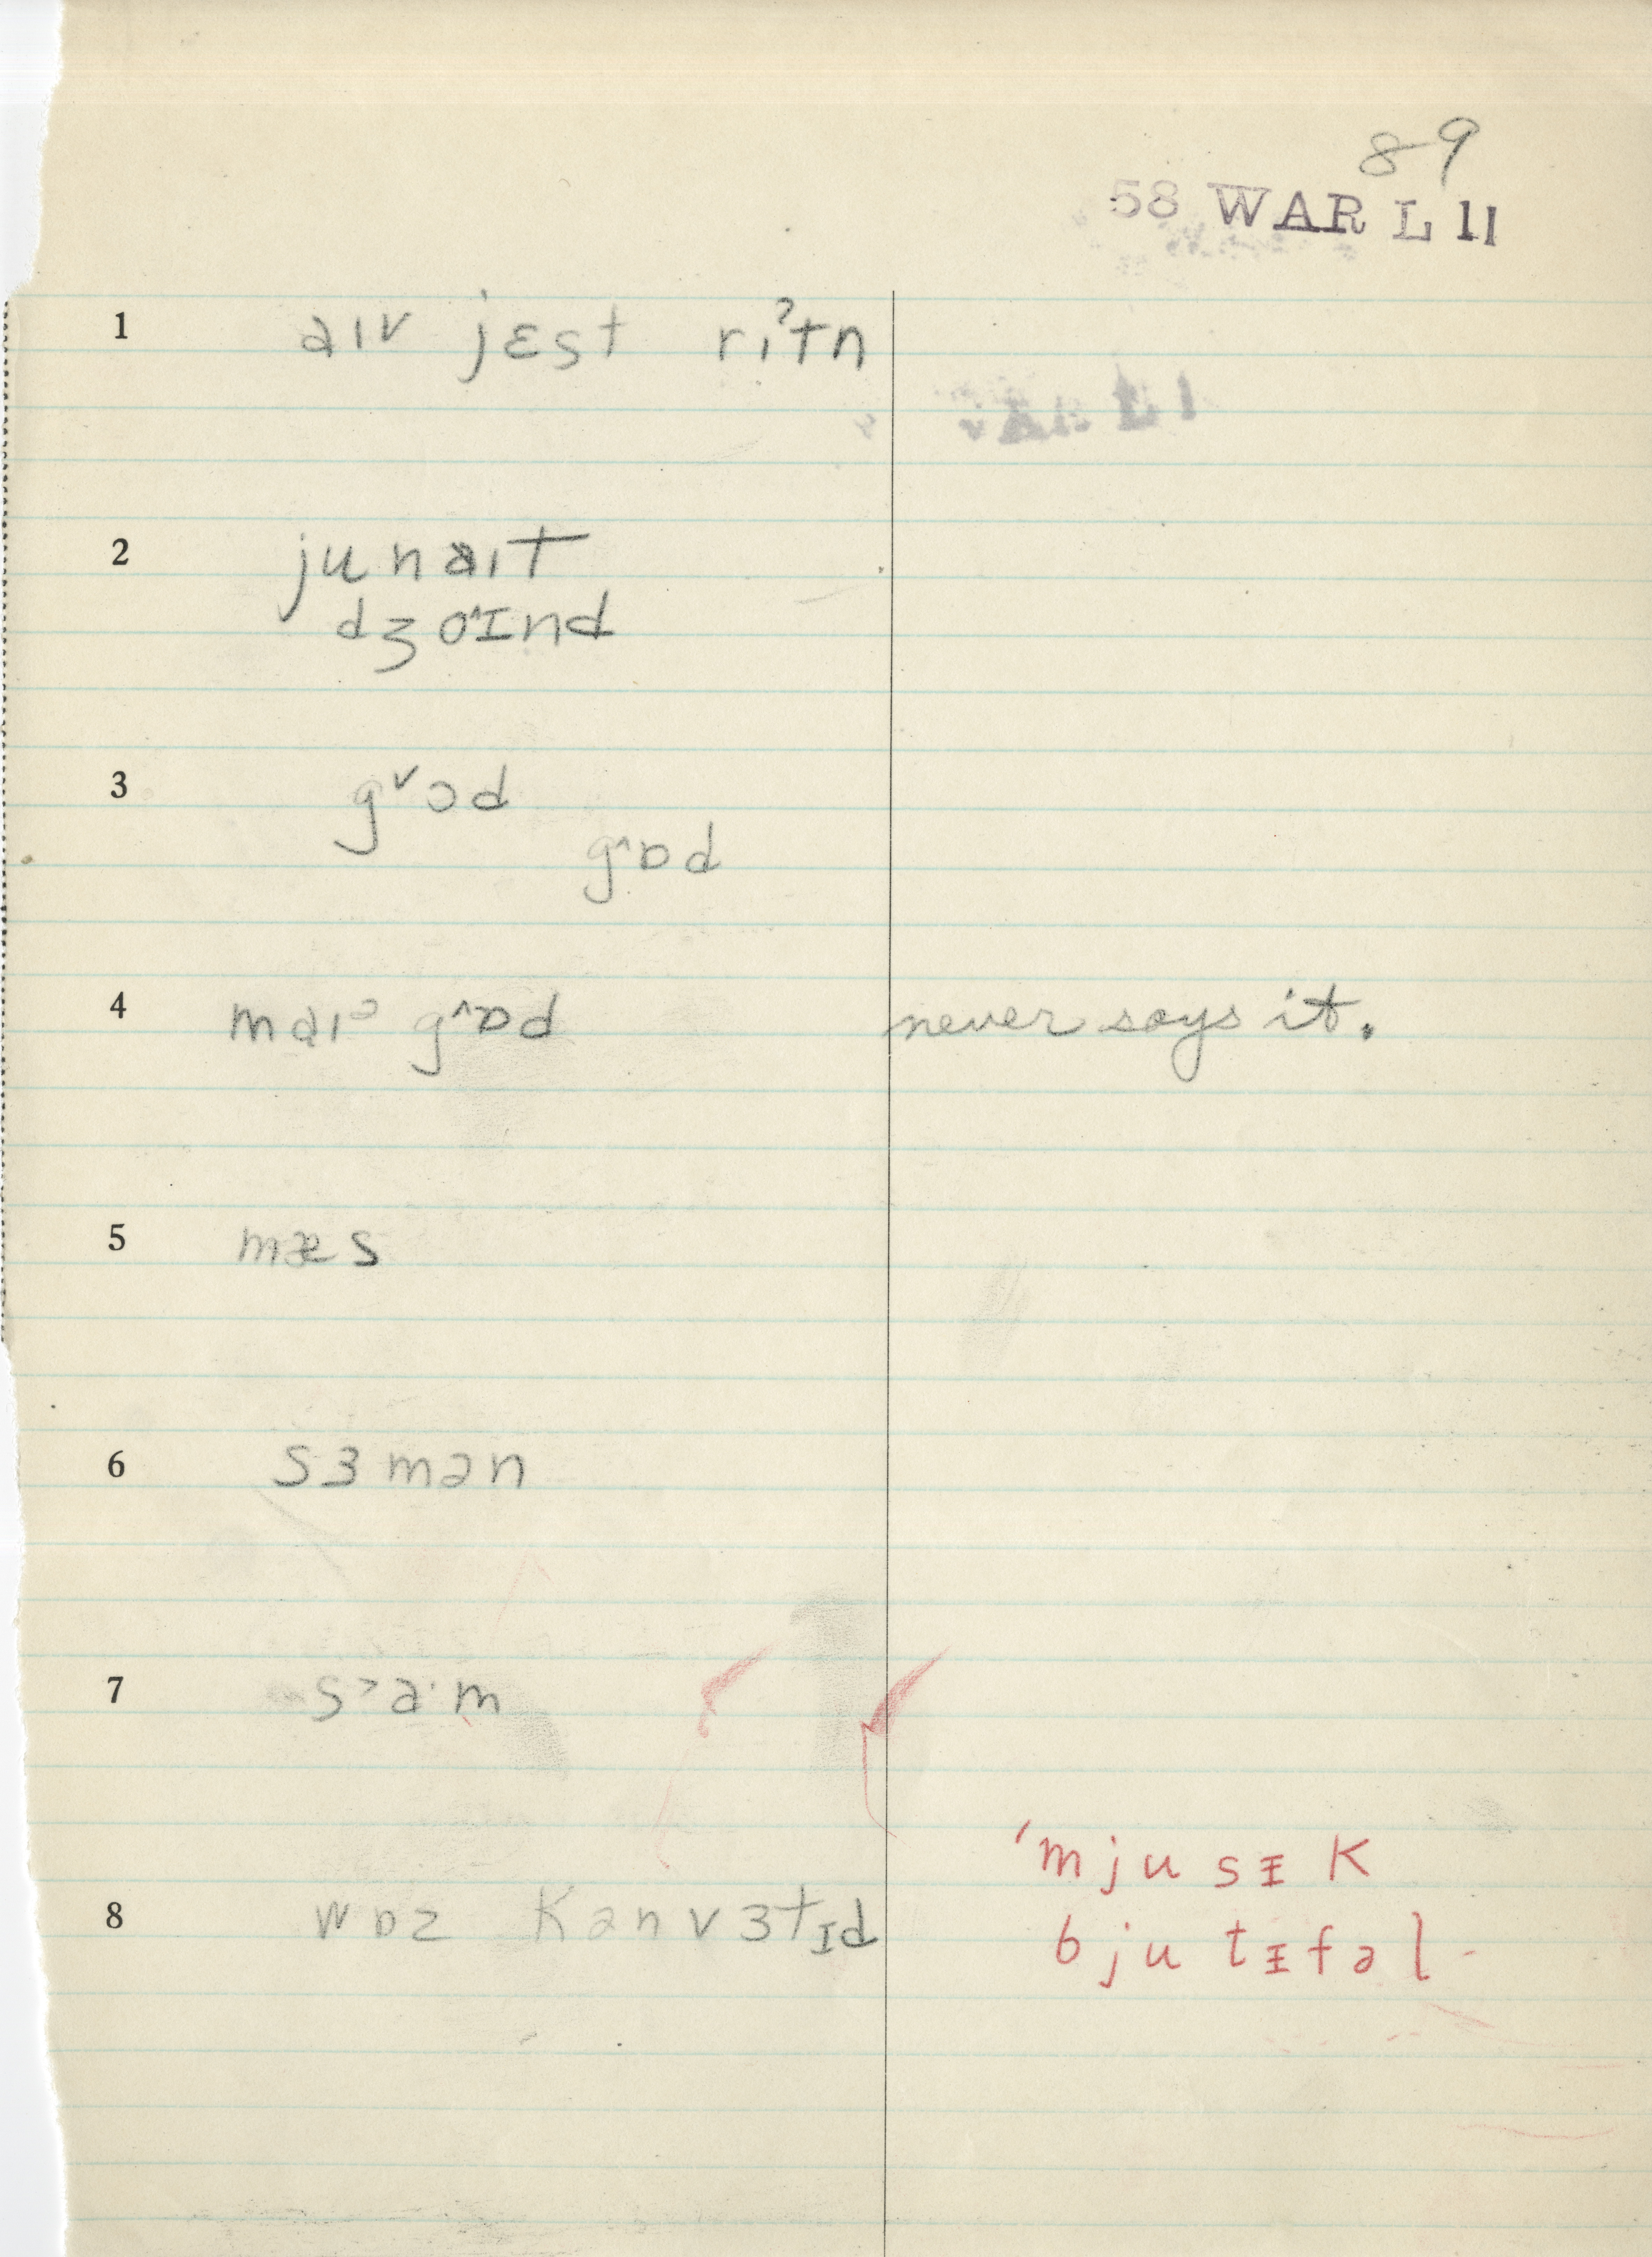 89
58 WAR L 11
1 aɪv jɛst riˀtn
2 junaɪt
dʒo˄ɪnd
3 g˅ɔd
g˄ɒd
4 maɪᵓ g˄ɒd never says it.
5 mæs
6 sɜmən
7 s˃a·m
8 wɒz kənvɜtɪd
ˈmjusɪk
bjutɪfəl-